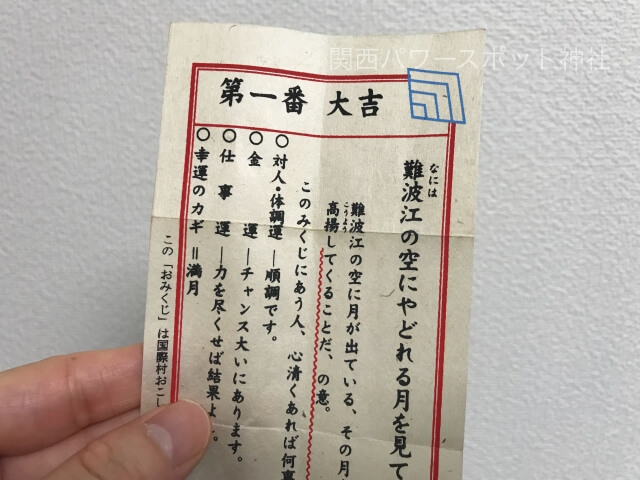 関西パワースポット神社
第一番 大吉
難波江の空にやどれる月を見て
なには
難波江の空に月が出ている、その月
高揚してくることだ、の意。
こうよう
このみくじにあう人、心清くあれば何事
○対人・体調運―順調です。
○金 運―チャンス大いにあります。
○仕 事 運―力を尽くせば結果よ
。
○幸運のカギ=満月
この「おみくじ」は国際村おこし